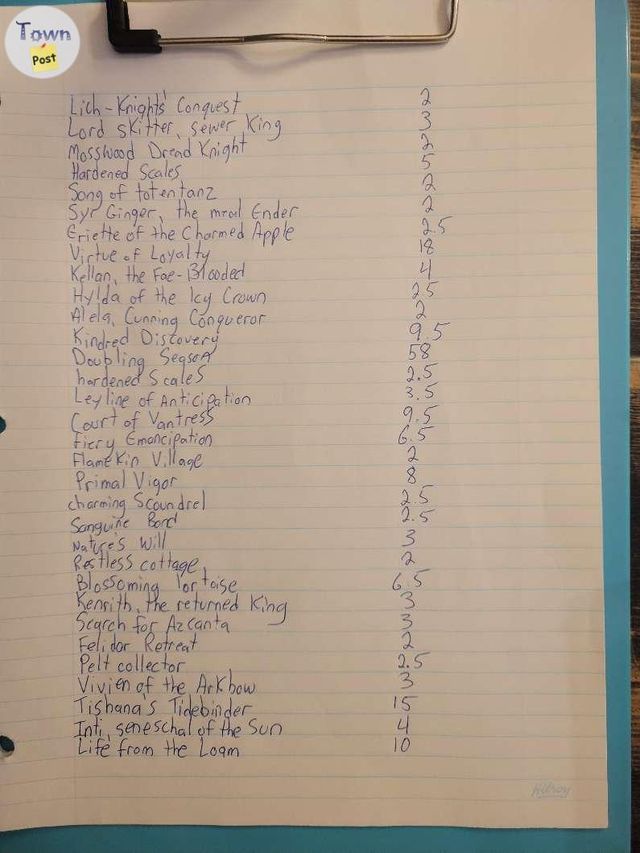 Town
Post
Lich-Knights' Conquest 2
Lord Skitter, sewer King 3
Mosswood Dread Knight 2
Hardened Scales 5
Song of totentanz 2
Syr Ginger, the meal Ender 2
Eriette of the Charmed Apple 2.5
Virtue of Loyalty 18
Kellan, the Fae-Blooded 4
Hylda of the Icy Crown 25
Alela, Cunning Conqueror 2
Kindred Discovery 9.5
Doubling Season 58
hardened Scales 2.5
Leyline of Anticipation 3.5
Court of Vantress 9.5
fiery Emancipation 6.5
Flamekin Village 2
Primal Vigor 8
charming Scoundrel 2.5
Sanguine Bond 2.5
Nature's Will 3
Restless cottage 2
Blossoming Tortoise 6.5
Kenrith, the returned King 3
Search for Azcanta 3
Felidar Retreat 2
Pelt collector 2.5
Vivien of the Arkbow 3
Tishana's Tidebinder 15
Inti, seneschal of the Sun 4
Life from the Loam 10
Hilroy